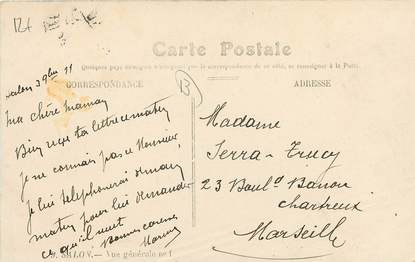 Carte Postale
Quelques pays étrangers n'acceptent pas la correspondance de ce côté, se renseigner à la Poste.
CORRESPONDANCE
ADRESSE
Salon 3 9bre 11
Ma chère Maman
Bien reçu ta lettre ce matin
je ne connais pas ce Monsieur
je lui telephonerai demain
matin pour lui demander
ce qu'il veut
Bonnes caresses
SALON. — Vue générale nº 1
B
Madame
Serra-Trucy
23 Boulᵈ Banon
chartreux
Marseille